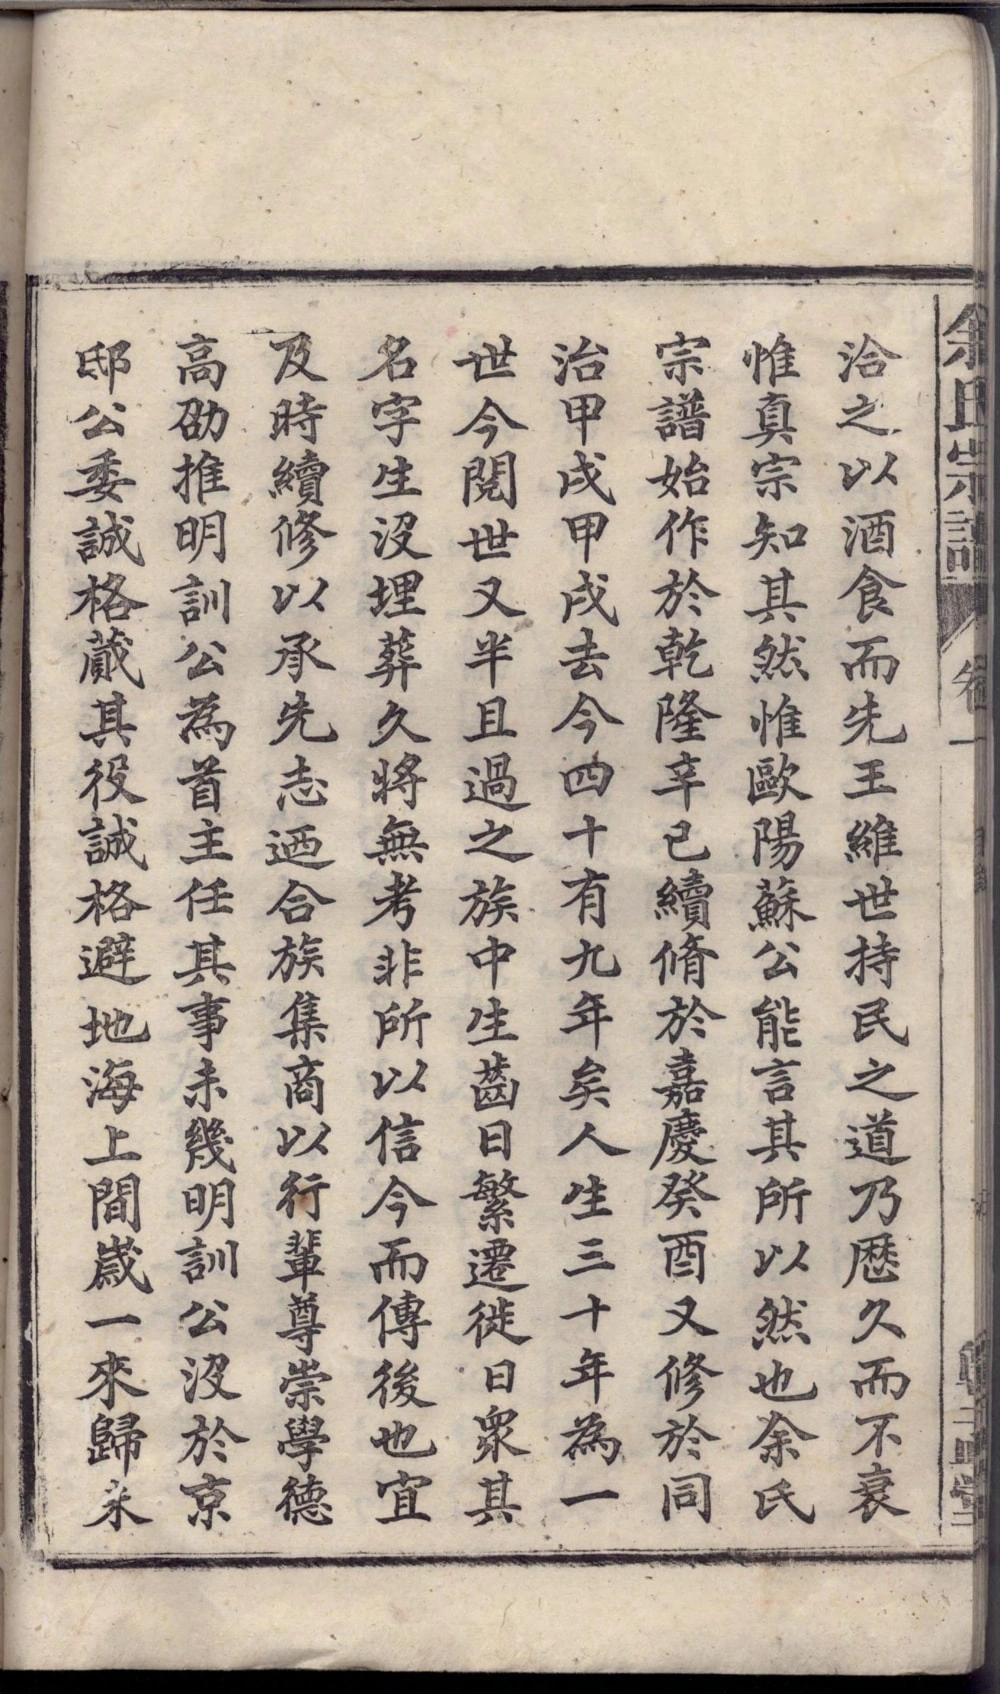 余氏宗譜 卷一
洽之以酒食而先王維世持民之道乃歷久而不衰
惟真宗知其然惟歐陽蘇公能言其所以然也余氏
宗譜始作於乾隆辛已續脩於嘉慶癸酉又修於同
治甲戌甲戌去今四十有九年矣人生三十年為一
世今閱世又半且過之族中生齒日繁遷徙日眾其
名字生沒埋葬久將無考非所以信今而傳後也宜
及時續修以承先志迺合族集商以行輩尊崇學德
高劭推明訓公為首主任其事未幾明訓公沒於京
邸公委誠格蕆其役誠格避地海上間歲一來歸未